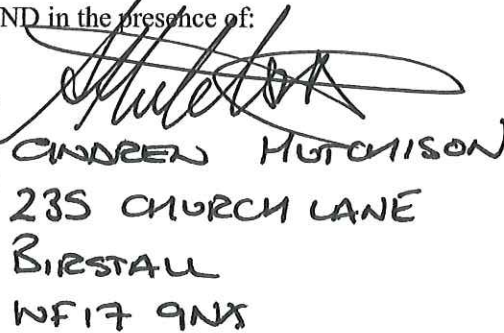 ND in the presence of:
ANDREW HUTCHISON
235 CHURCH LANE
BIRSTALL
WF17 9NX